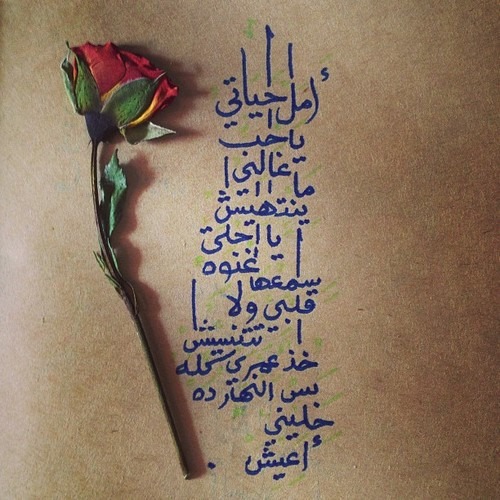 أمل حياتي
يا حب
غالي
ما
ينتهيش
يا احلى
غنوه
سمعها
قلبي ولا
تتنسيش
خذ عمري كله
بس النهارده
خليني
أعيش .